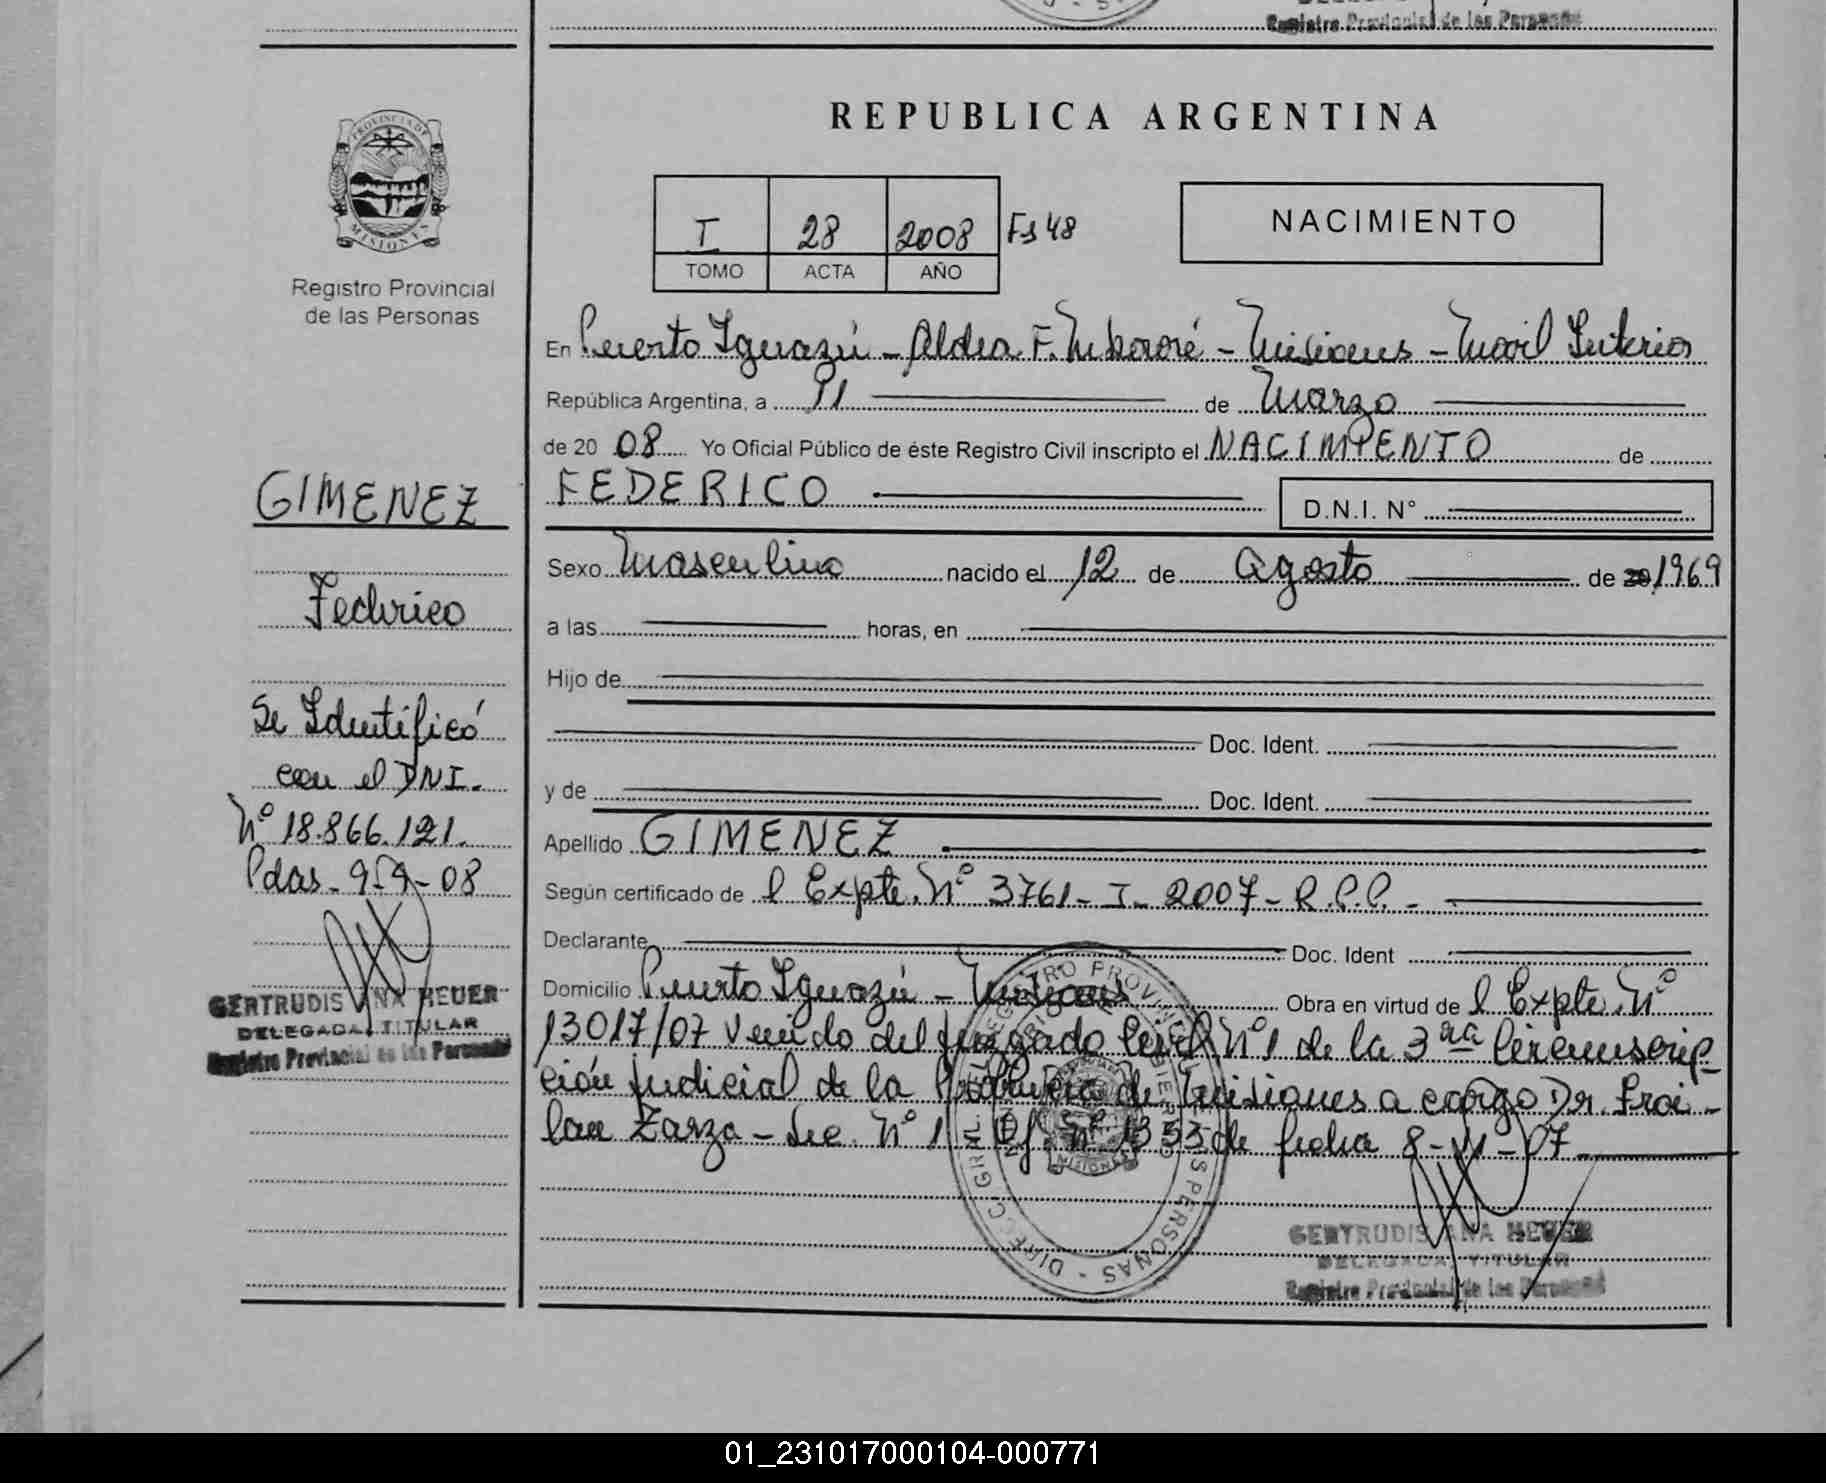 Registro Provincial de las Personas
REPUBLICA ARGENTINA
PROVINCIA DE
MISIONES
Registro Provincial
de las Personas
I 28 2008 Fs 48
TOMO ACTA AÑO
NACIMIENTO
En Puerto Iguazú - Aldea F. Mbororé - Misiones - Movil Interior
República Argentina, a 11 de Marzo
de 20 08 Yo Oficial Público de éste Registro Civil inscripto el NACIMIENTO de
FEDERICO D.N.I. N°
Sexo Masculino nacido el 12 de Agosto de 20 1969
a las horas, en
Hijo de
Doc. Ident.
y de Doc. Ident.
Apellido GIMENEZ
Según certificado de l Expte. N° 3761 - I - 2007 - R.P.P. -
Declarante Doc. Ident
Domicilio Puerto Iguazú - Misiones Obra en virtud de l Expte. N°
13017/07 Venido del Juzgado Civil N° 1 de la 3ra Circunscrip-
ción Judicial de la Provincia de Misiones a cargo Dr. Froi-
lan Zarza - Sec. N° 1 Of. N° 1353 de fecha 8-11-07
GERTRUDIS ANA HEUER
DELEGADA TITULAR
Registro Provincial de las Personas
GIMENEZ
Federico
Se Identificó
con el DNI.
N° 18.866.121.
Pdas - 9-9-08
GERTRUDIS ANA HEUER
DELEGADA TITULAR
Registro Provincial de las Personas
01_231017000104-000771